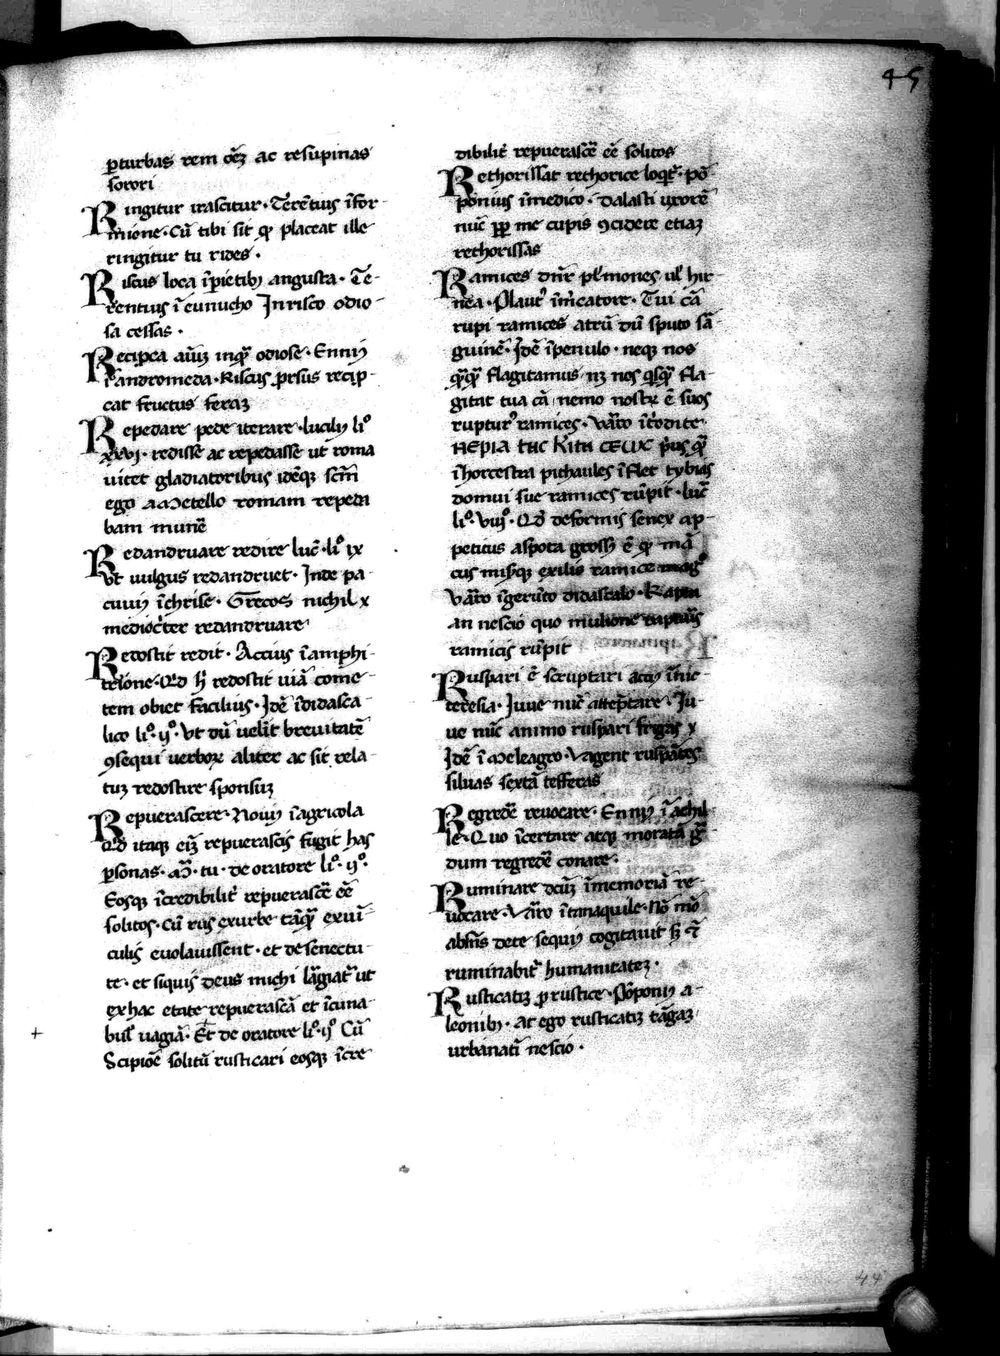 45
ꝑturbas rem oēꝫ ac resupinas
sorori
Ringitur irascitur · Terētius īfor-
mione · Cū tibi sit ꝙ placeat ille
ringitur tu rides ·
Riscus loca īpietibꝰ angusta · Te-
rentius ī eunucho In risco odio-
sa cessas ·
Recipca aūꝫ inꝗᷓ odiose · Enniꝰ
ī andromeda · Riscus ꝓrsus recip-
cat fructus feraꝫ
Repedare pede iterare · luciliꝰ liº
xxvj · redisse ac repedasse ut roma
vitet gladiatoribus idēqꝫ scm̄
ego a Metello romam repeda
bam munē
Redandruare redire luc̄ · liº ix
Vt vulgus redandruet · Inde pa-
cuviꝰ īchrise · Grecos nichil x
medioc̓ter redandruare
Redostit redit · Accius īamphi-
trione · Qd h̓ redostit viā come-
tem obiet facilius · Idē ī didasca-
lico liº · ijº · Vt dū velīt brevitatē
ꝯsequi verboꝝ aliter ac sit rela-
tuꝫ redostire sponsuꝫ
Repuerascere · Noviꝰ ī agricola
Qd itaqꝫ eiꝫ repuerascis fugit has
ꝑsonas · M̄ · tu · de oratore liº · ijº ·
Eosqꝫ īcredibilit̓ repuerascē eē
solitos · Cū rus exurbe tāꝗᷓ exvī-
culis evolavissent · et de senectu-
te · et siquis deus michi lᷓgiat᷑ ut
ex hac etate repuerascā et īcuna-
bul̓ vagiā · Et de oratore liº · ijº Cū
Scipiōe solitū rusticari eosqꝫ īcre
dibilit̓ repuerascē eē solitos
Rethorissat rethorice loqt᷑ · pō-
ponius īmedico · Dalasti uxorē
nūc ꝓp me cupis ꝯcidere etiaꝫ
rethorissas
Ramices dnr̄ pl̓mones ul̓ hir
nea · Plaut᷑ ī m̓catore · Tui cā
rupi ramices atrū dū sputo sā-
guinē · Idē īpenulo · neqꝫ nos
ꝗᷓꝗᷓ flagitamus nꝫ nos qsꝗᷓ fla-
gitat tua cā nemo nostꝝ ē suos
ruptur᷑ ramices · Varro
pius ꝗᷓ
īhorcestra pithaules īflet tybias
domui sue ramices rūpit · luc̄
liº · viijº · Qd deformis senex ap-
petitus
cus misqꝫ exilis ramice
Varro didascalo · Rapta
an nescio quo mulione
ramicis rūpit
Ruspari ē scruptari
teresia · Iuve nūc · Iu-
ve nūc animo ruspari frigas x
Idē ī Meleagro · Vagent ruspātes
silvas sextā tesseras
Regredē revocare · Enniꝰ ī achil
le · Quo īcertare atqꝫ moratā
dum regredē conare ·
Ruminare dcūꝫ īmemoriā re-
vocare · Varro ītanaquile · Nō mō
absēs dete sequiꝰ cogitavit sꝫ ⁊
ruminabit᷑ humanitateꝫ ·
Rusticatiꝫ ꝓ rustice · Pōponiꝰ a-
leonibꝰ · At ego rusticatiꝫ tāgaꝫ
urbanatī nescio ·
44